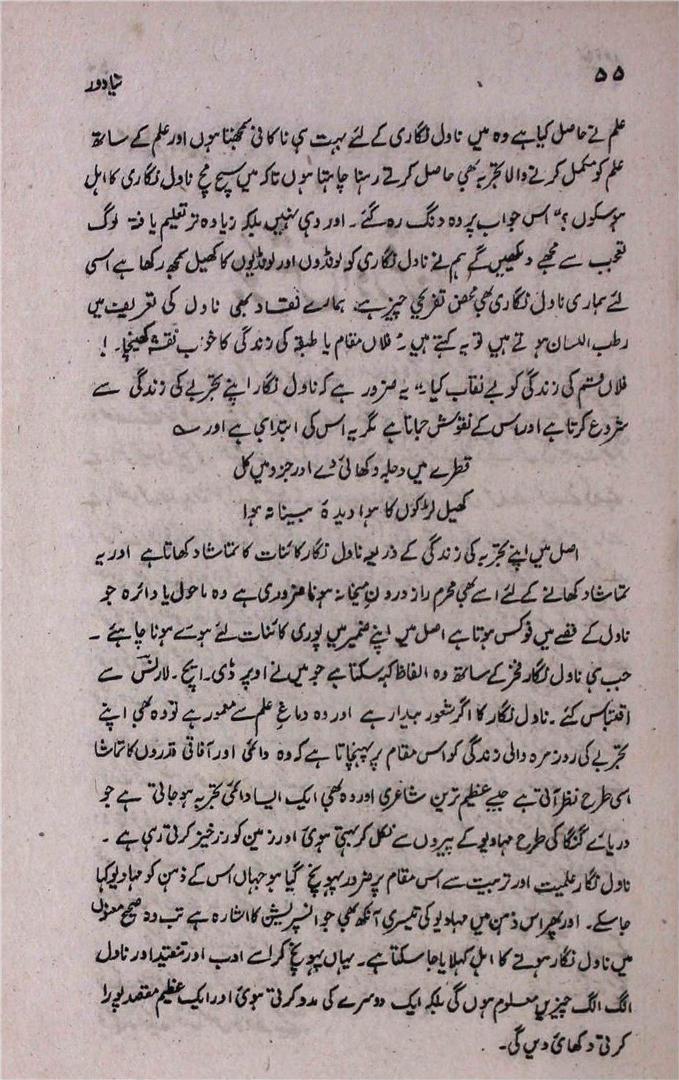 ۵۵ نیا دور
علم نے حاصل کیا ہے وہ میں ناول نگاری کے لئے بہت ہی ناکافی سمجھتا ہوں اور علم کے ساتھ
علم کو مکمل کرنے والا تجربہ بھی حاصل کرتے رہنا چاہتا ہوں تاکہ میں سچ مچ ناول نگاری کا اہل
ہو سکوں ؟" اس جواب پر وہ دنگ رہ گئے ۔ اور وہی نہیں بلکہ زیادہ تر تعلیم یافتہ لوگ
تعجب سے مجھے دیکھیں گے ہم نے ناول نگاری کو لونڈوں اور لونڈیوں کا کھیل سمجھ رکھا ہے اسی
لئے ہماری ناول نگاری بھی محض تفریحی چیز ہے، ہمارے نقاد بھی ناول کی تعریف میں
رطب اللسان ہوتے ہیں تو یہ کہتے ہیں " فلاں مقام یا طبقہ کی زندگی کا خوب نقشہ کھینچا ۔ !
فلاں قسم کی زندگی کو بے نقاب کیا " یہ ضرور ہے کہ ناول نگار اپنے تجربے کی زندگی سے
شروع کرتا ہے اور اس کے نقوش جماتا ہے مگر یہ اس کی ابتدا ہی ہے اور ؎
قطرے میں دجلہ دکھائی دے اور جزو میں کل
کھیل لڑکوں کا ہوا دیدۂ بینا نہ ہوا
اصل میں اپنے تجربہ کی زندگی کے ذریعہ ناول نگار کائنات کا تماشا دکھاتا ہے اور یہ
تماشا دکھانے کے لئے اسے بھی محرم راز درونِ میخانہ ہونا ضروری ہے وہ ماحول یا دائرہ جو
ناول کے قصے میں فوکس ہوتا ہے اصل میں اپنے ضمیر میں پوری کائنات لئے ہوئے ہونا چاہئے ۔
جب ہی ناول نگار فخر کے ساتھ وہ الفاظ کہہ سکتا ہے جو میں نے اوپر ڈی ۔ ایچ ۔ لارنس سے
اقتباس کئے ۔ ناول نگار کا اگر شعور بیدار ہے اور وہ دماغِ علم سے معمور ہے تو وہ بھی اپنے
تجربے کی روزمرہ والی زندگی کو اس مقام پر پہنچاتا ہے کہ وہ دائمی اور آفاقی قدروں کا تماشا
اسی طرح نظر آتی ہے جیسے عظیم ترین شاعری اور وہ بھی ایک ایسا دائمی تجربہ ہو جاتی ہے جو
دریائے گنگا کی طرح مہادیو کے پیروں سے نکل کر بہتی ہوئی اور زمین کو زرخیز کرتی رہی ہے ۔
ناول نگار علمیت اور تربیت سے اس مقام پر ضرور پہونچ گیا ہو جہاں اس کے ذہن کو مہادیو کہا
جا سکے ۔ اور پھر اس ذہن میں مہادیو کی تیسری آنکھ بھی جو انسپریشن کا اشارہ ہے تب وہ صحیح معنوں
میں ناول نگار ہونے کا اہل کہلایا جا سکتا ہے ۔ یہاں پہونچ کر اسے ادب اور تنقید اور ناول
الگ الگ چیزیں معلوم ہوں گی بلکہ ایک دوسرے کی مدد کرتی ہوئی اور ایک عظیم مقصد پورا
کرتی دکھائی دیں گی ۔